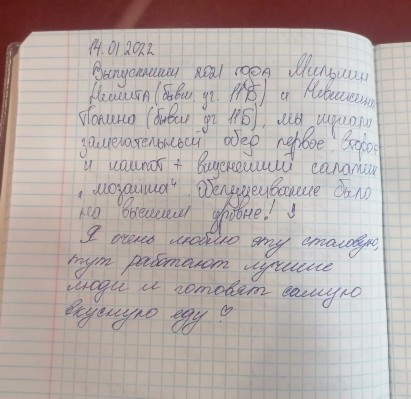 14.01.2022
Выпускники 2021 года
(бывш. уч. 11"Б") и
Полина (бывш. уч 11"Б"), мы
замечательный обед первое, второе
и компот + вкуснейший салатик
"мозаика". Обслуживание было
на высшем уровне!
Я очень люблю эту столовую,
тут работают лучшие
люди и готовят самую
вкусную еду ♡